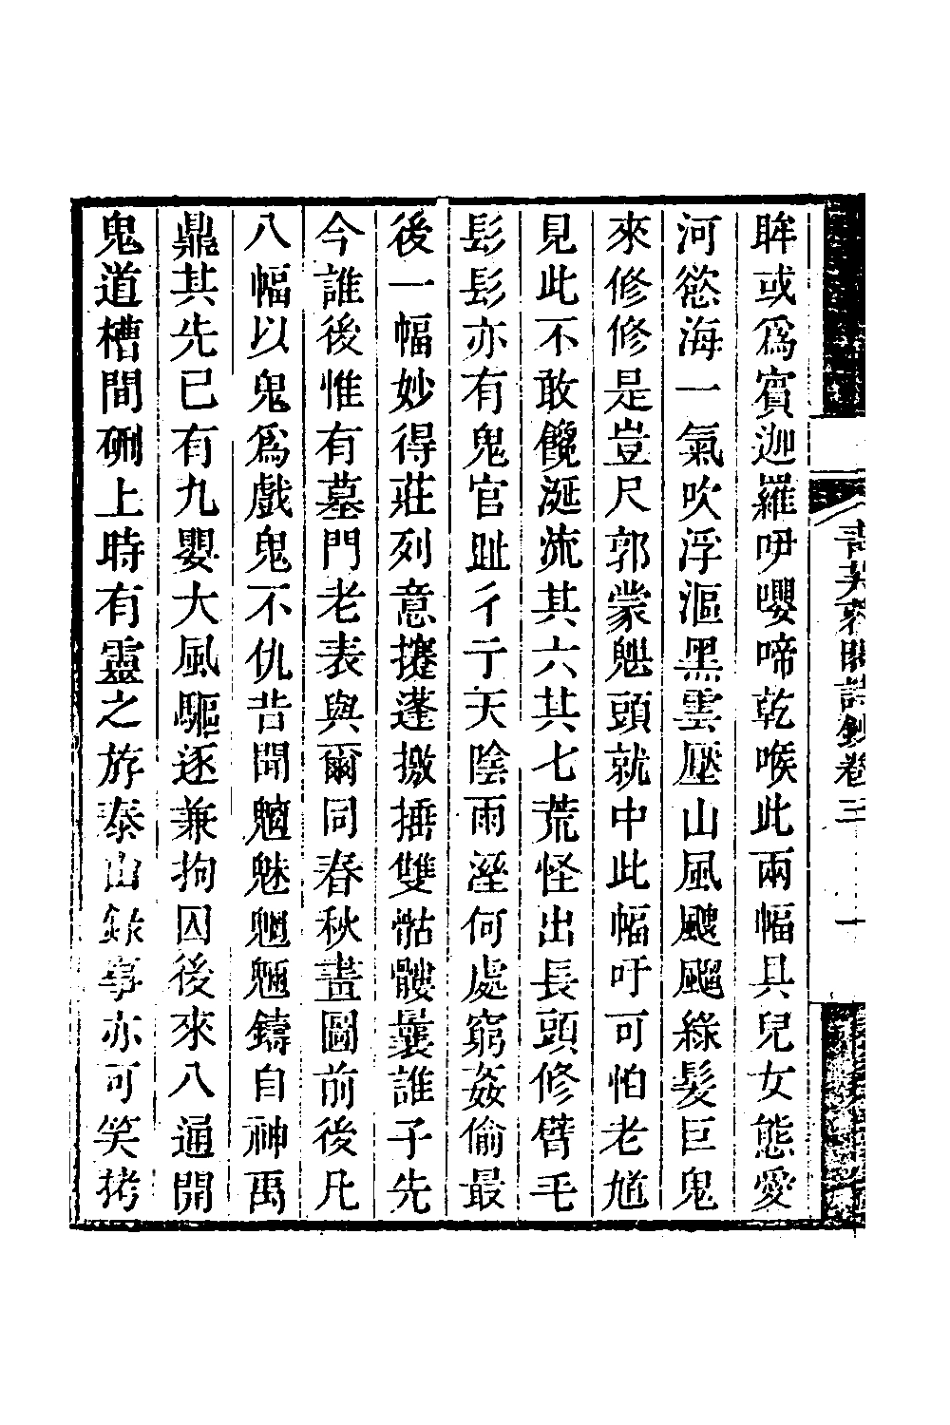 青芙蓉閣詩鈔卷三 一
眸或爲賓迦羅吚嚶啼乾喉此兩幅具兒女態愛
河慾海一氣吹浮漚黑雲壓山風颼飀綠髮巨鬼
來修修是豈尺郭蒙魌頭就中此幅吁可怕老尵
見此不敢饞涎流其六其七荒怪出長頭修臂毛
髟髟亦有鬼官趾彳亍天陰雨溼何處窮姦偷最
後一幅妙得莊列意攓蓬撽捶雙骷髏曩誰子先
今誰後惟有墓門老表與爾同春秋畫圖前後凡
八幅以鬼爲戲鬼不仇昔聞魑魅魍魎鑄自神禹
鼎其先已有九嬰大風驅逐兼拘囚後來八通開
鬼道槽間硎上時有靈之斿泰山錄事亦可笑拷